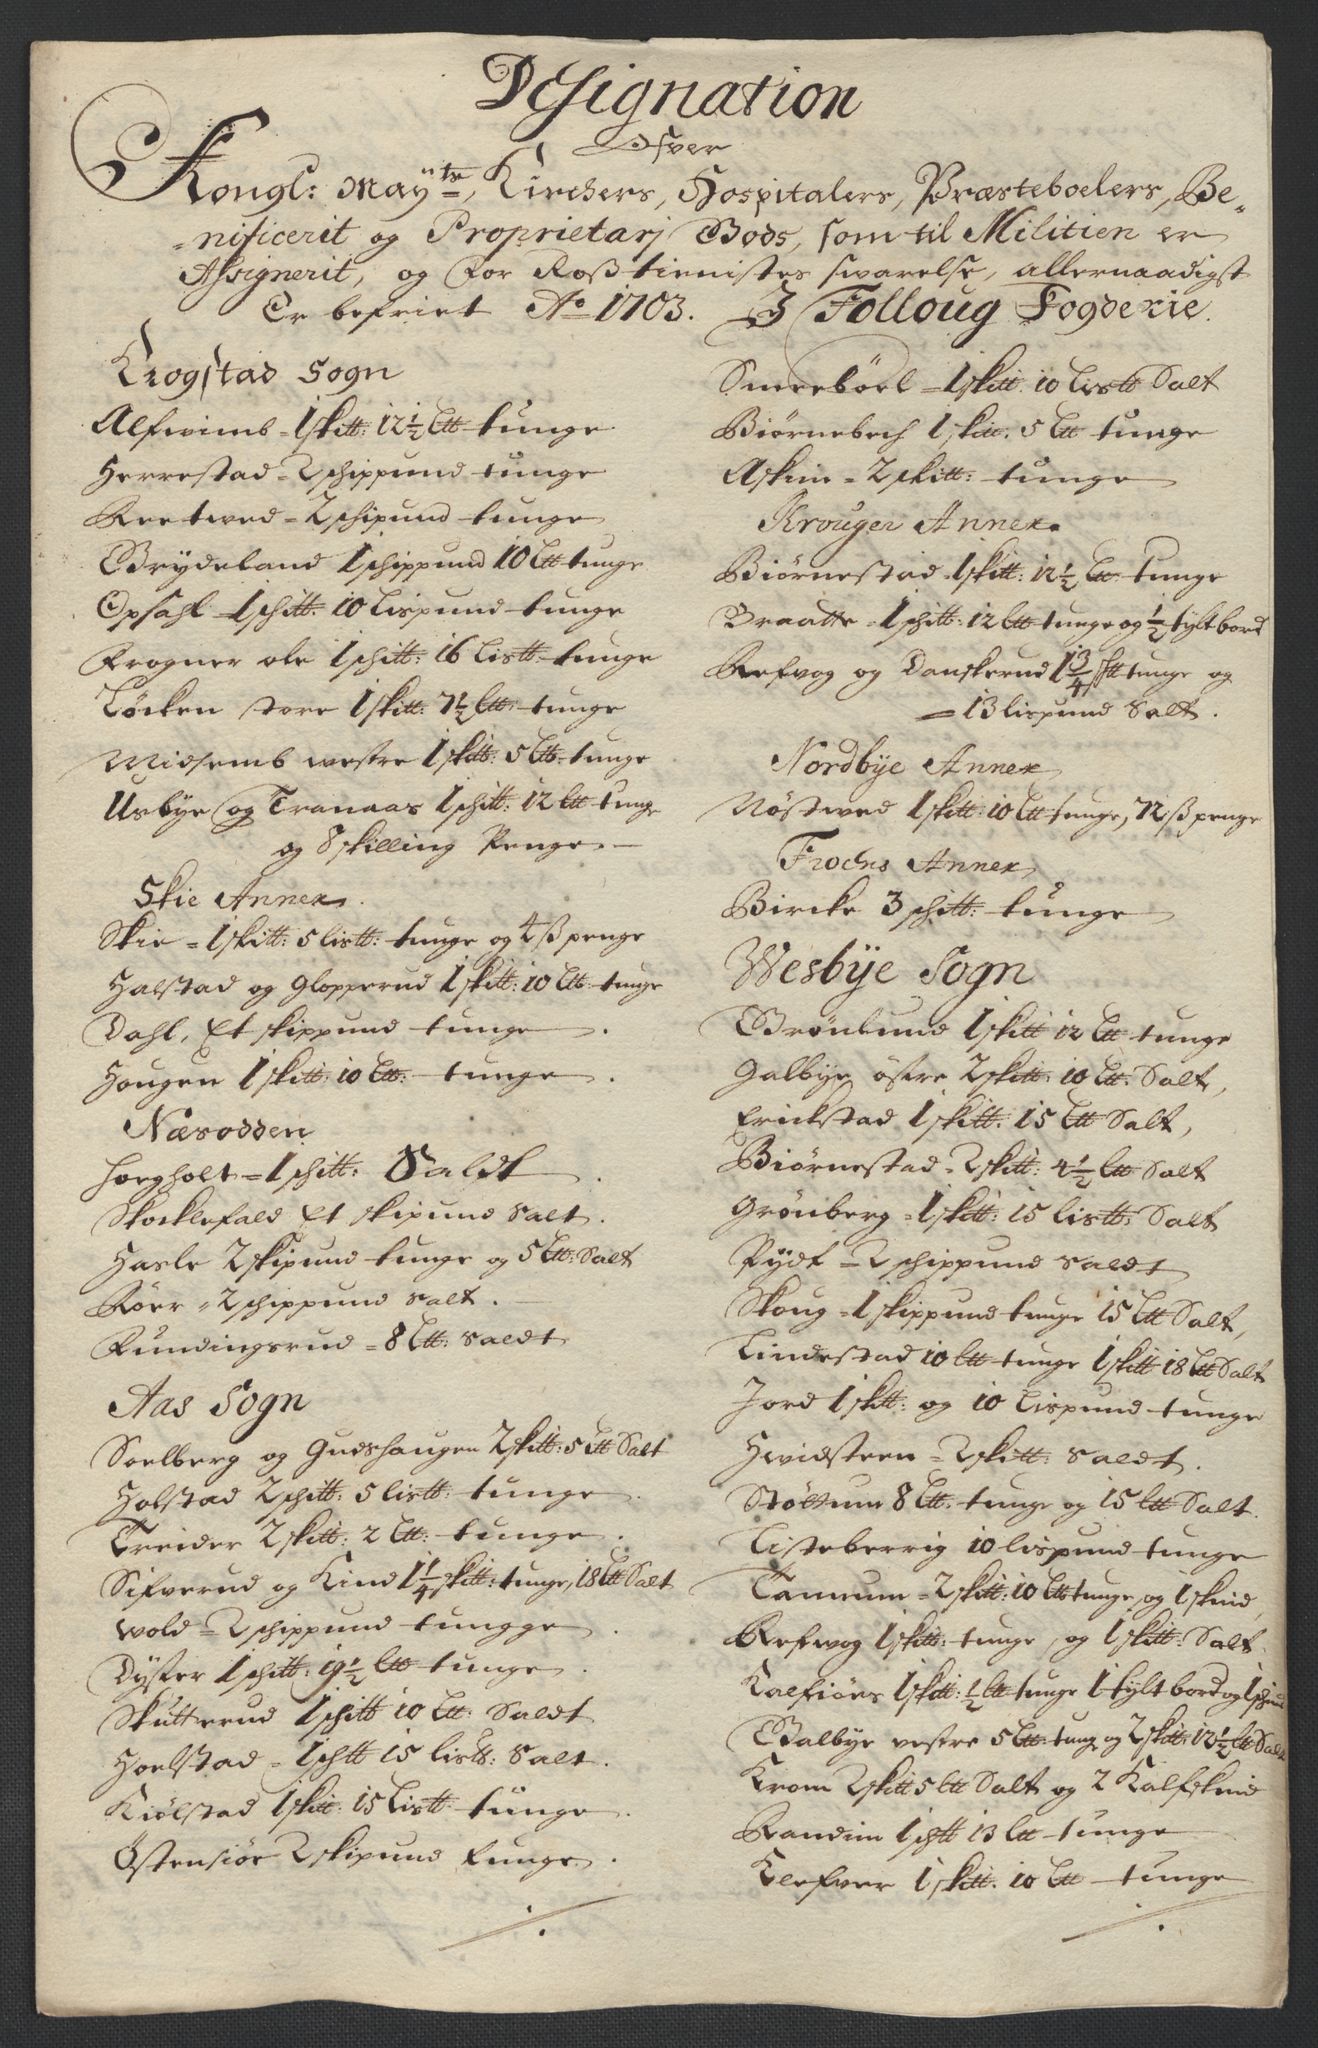 Designation
Ofver
Kongl: May:tz, Kirchers, Hospitalers, Præsteboelers, Be-
nificerit og Proprietarj Gods, som til Militien er
Assignerit, og for Rosstienistes swarelse, allernaadigst
Er befriet Ao 1703. I Folloug Fogderie.
Krogstad Sogn
Alfwimb - 1 skitt: 12½ Ltt tunge
Herrestad - 2 schippund tunge
Reetwed - 2 schipund tunge
Grydeland 1 schippund 10 Ltt tunge
Opsahl - 1 schitt: 10 Lispund tunge
Frogner ole 1 schitt: 16 Listt tunge
Löcken store 1 skitt: 7½ Ltt: tunge
Midsemb westre 1 skitt: 5 Ltt: tunge
Usbye og Tranaas 1 schitt: 12 Ltt tunge
og 8 skilling Penge
Skie Annex.
Skie - 1 skitt: 5 listt: tunge og 4 ß penge
Halstad og Glopperud 1 skitt: 10 Ltt tunge
Dahl, Et skippund tunge
Hougen 1 skitt: 10 Ltt: tunge
Næsodden
Horgholt - 1 schitt: Saldt
Skocklefald Et skipund Salt.
Hasle 2 skipund tunge og 5 Ltt: Salt
Röer - 2 schippund Salt.
Fundingsrud - 8 Ltt: Saldt
Aas Sogn
Soelberg og Gudshaugen 2 skitt: 5 Ltt Salt
Holstad 2 schitt: 5 listt: tunge
Treider 2 skitt: 2 Ltt: tunge.
Sifverud og Kind 1¼ skitt: tunge, 18 Ltt Salt
Wold - 2 schippund tungge
Dyster 1 schitt: 19½ Ltt tunge
Skutterud 1 schitt 10 Ltt: Saldt
Hoelstad - 1 schtt 15 listt: Salt.
Kiölstad 1 skitt: 15 Listt tunge
Östensiör 2 skipund tunge.
Smeeböel - 1 skitt. 10 Listt Salt
Biörnebech 1 skitt. 5 Ltt tunge
Askim - 2 skitt: tunge
Krouger Annex.
Biörnestad - 1 skitt: 12½ Ltt tunge
Braatte - 1 schitt: 12 Ltt tunge og ½ tylt bord
Refvog og Danskerud 1¾ sktt tunge og
- 13 lispund Salt.
Nordbye Annex
Nöstwed 1 skitt: 10 Ltt tunge, 12 ß penge
Froens Annex
Bircke 3 schitt: tunge
Wesbye Sogn
Grönlund 1 skitt 12 Ltt tunge
Galbye östre 2 skitt: 10 Ltt: Salt,
Erickstad 1 skitt: 15 Ltt Salt,
Biörnestad - 2 skitt: 4½ Ltt Salt
Grönberg - 1 skitt: 15 listt: Salt
Rydt - 2 schippund Saldt
Skoug - 1 skippund tunge 15 Ltt Salt,
Lindestad 10 Ltt tunge 1 skitt 18 Ltt Salt
Jord 1 skitt: og 10 Lispund tunge
Hwidsteen - 2 skitt: Saldt.
Stöttum 8 Ltt: tunge og 15 Ltt Salt.
Listeberrig 10 lispund tunge
Tamrum - 2 skitt: 10 Ltt tunge og 1 skind,
Refwog 1 skitt: tunge, og 1 skitt: Salt.
Kalfiörs 1 skitt: ½ Ltt tunge 1 tylt bord og 1 schind
Galbye vestre 5 Ltt: tung og 2 skitt: 12½ Ltt Salt
Krom 2 skitt 5 Ltt Salt og 2 Kalfskind
Randim 1 schtt 13 Ltt tunge
Klefver 1 skitt. 10 Ltt tunge